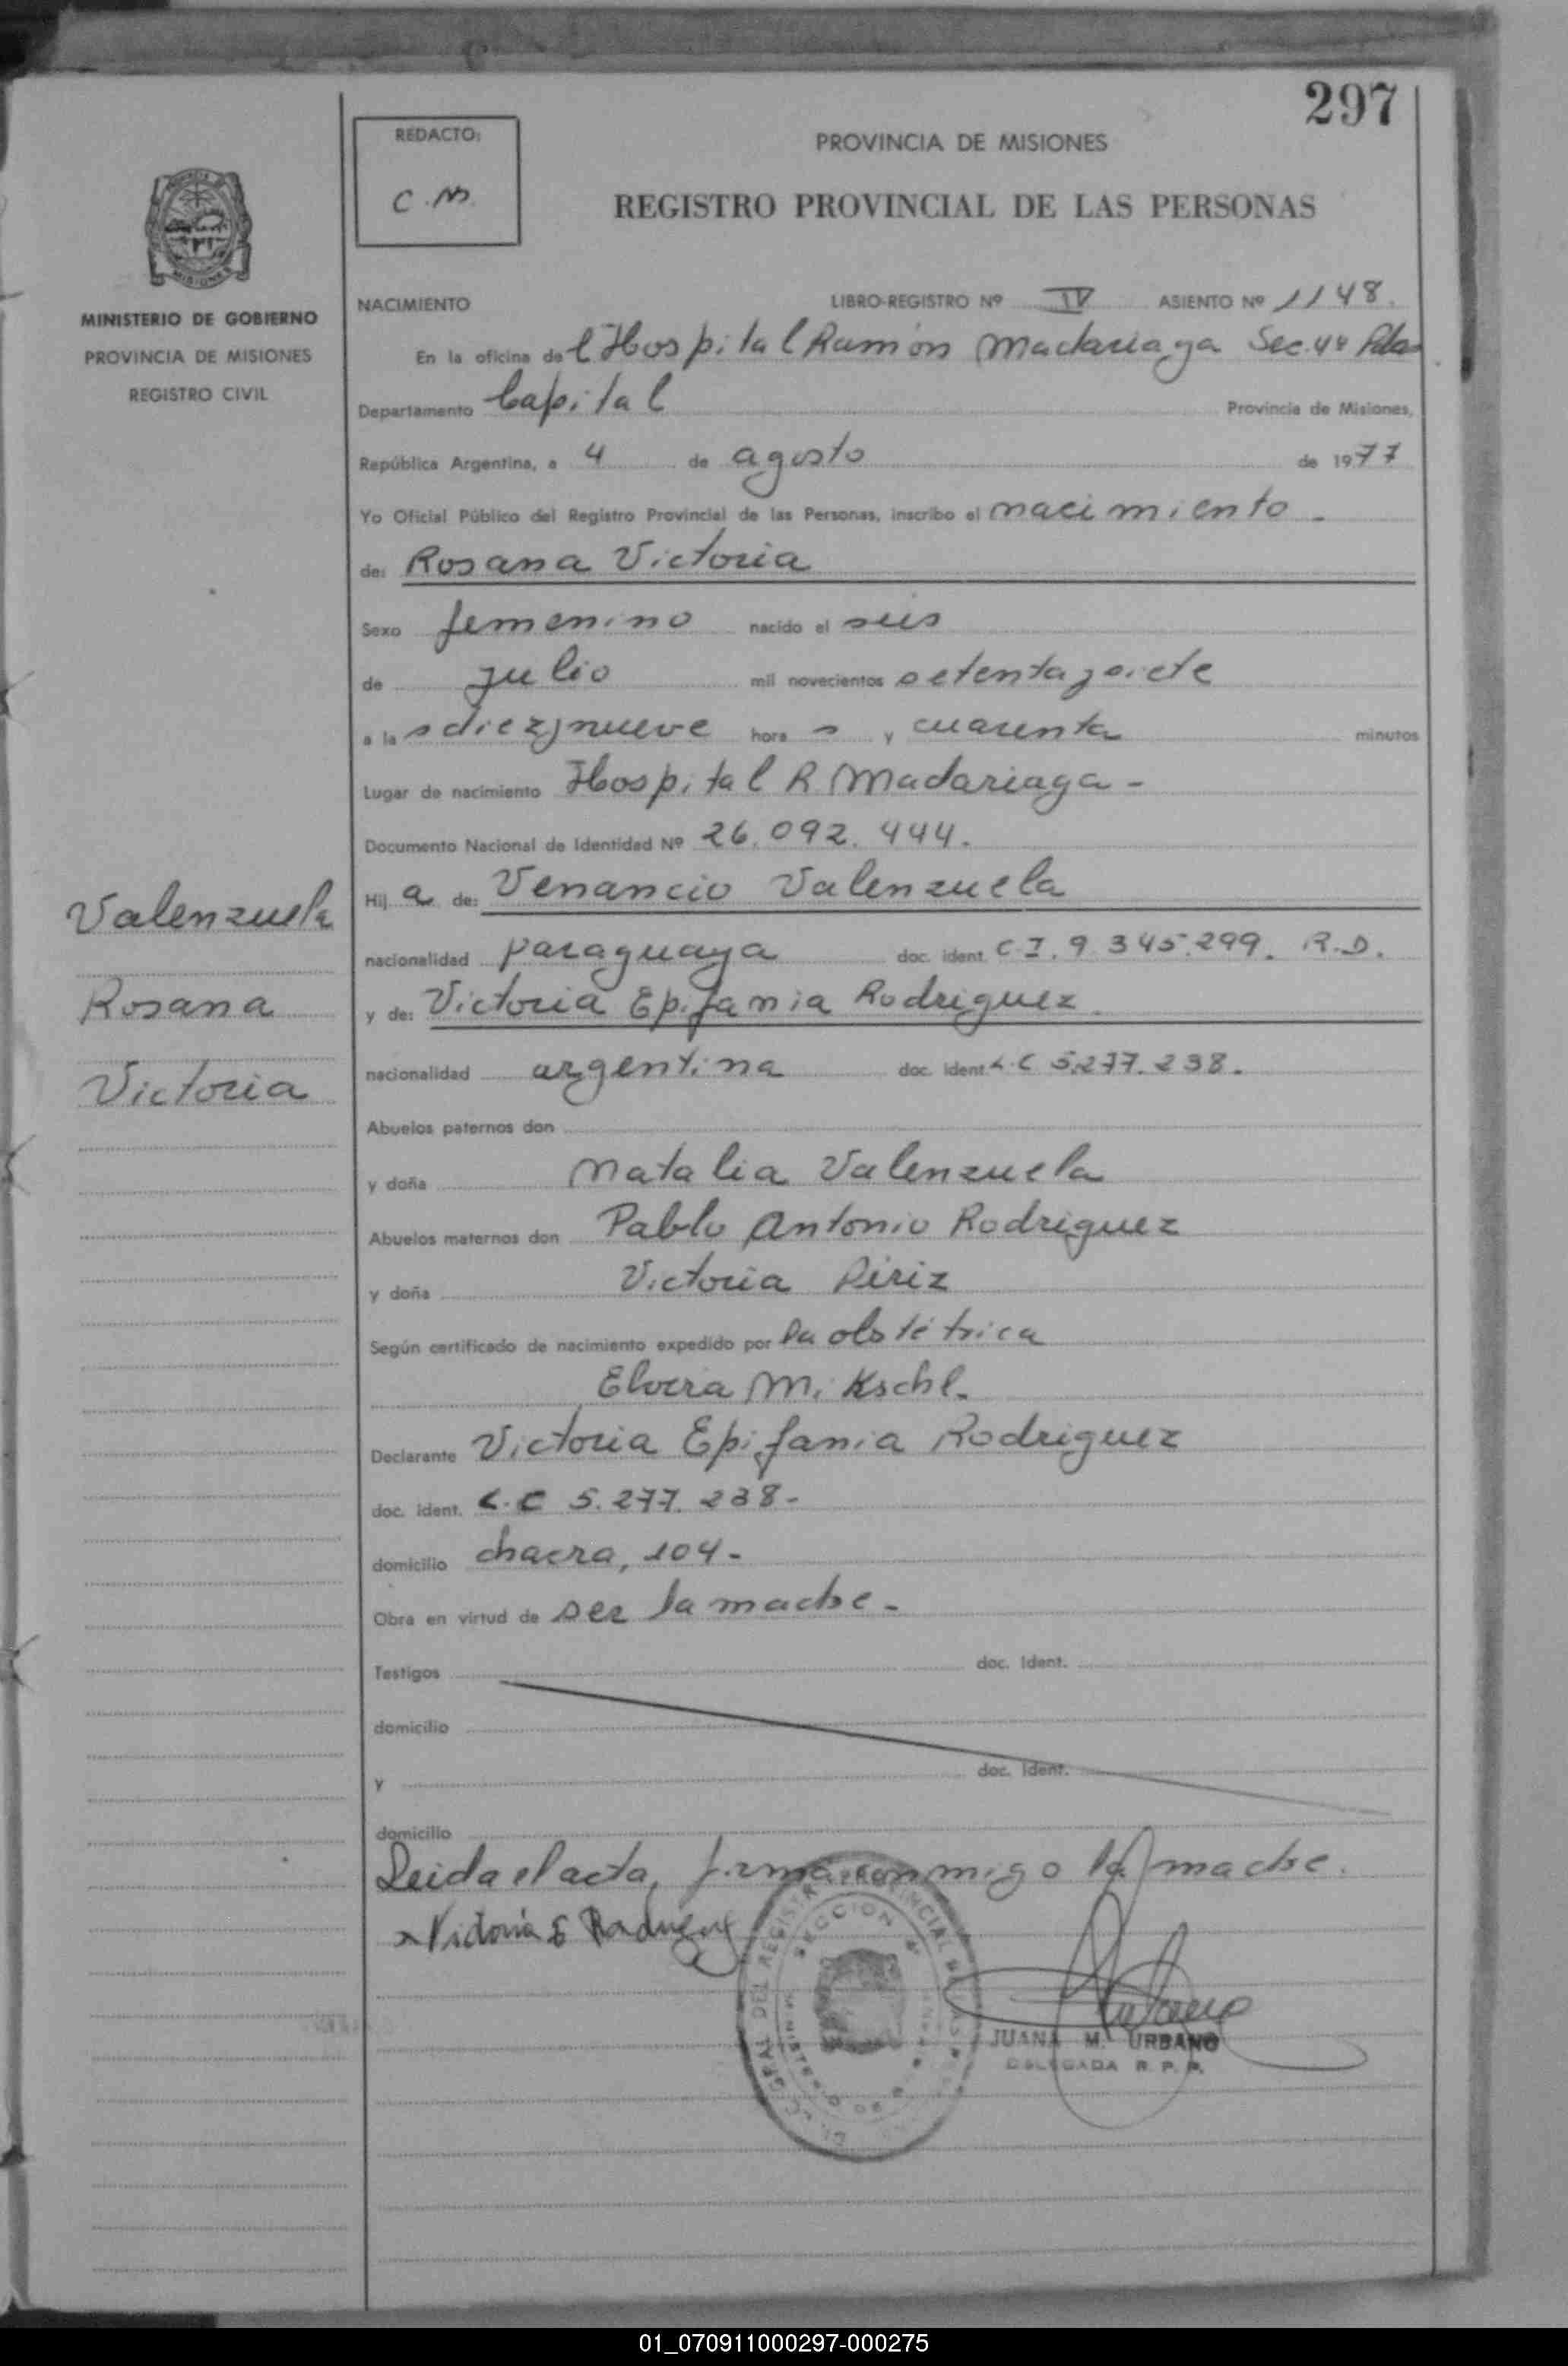 297
REDACTO:
C.M.
PROVINCIA DE MISIONES
REGISTRO PROVINCIAL DE LAS PERSONAS
MISIONES
MINISTERIO DE GOBIERNO
PROVINCIA DE MISIONES
REGISTRO CIVIL
NACIMIENTO LIBRO-REGISTRO Nº IV ASIENTO Nº 1148.
En la oficina del Hospital Ramón Madariaga Sec. 4º Pdas
Departamento Capital Provincia de Misiones,
República Argentina, a 4 de agosto de 1977
Yo Oficial Público del Registro Provincial de las Personas, inscribo el nacimiento -
de: Rosana Victoria
Sexo femenino nacido el seis
de julio mil novecientos setentaysiete
a las diezynueve horas y cuarenta minutos
Lugar de nacimiento Hospital R Madariaga -
Documento Nacional de Identidad Nº 26.092.444.
Hija de: Venancio Valenzuela
nacionalidad paraguaya doc. ident. C.I. 9.345.299. R.D.
y de: Victoria Epifania Rodriguez
nacionalidad argentina doc. ident. L.C 5.277.238.
Abuelos paternos don
y doña Natalia Valenzuela
Abuelos maternos don Pablo Antonio Rodriguez
y doña Victoria Piriz
Según certificado de nacimiento expedido por la obstétrica
Elvira M. Kschl.
Declarante Victoria Epifania Rodriguez
doc. ident. L.C 5.277.238-
domicilio chacra, 104-
Obra en virtud de ser la madre-
Testigos doc. ident.
domicilio
y doc. ident.
domicilio
Leida el acta, firma conmigo la madre.
x Victoria E Rodriguez
SECCION 4
JUANA M. URBANO
DELEGADA R. P. P.
Valenzuela
Rosana
Victoria
01_070911000297-000275